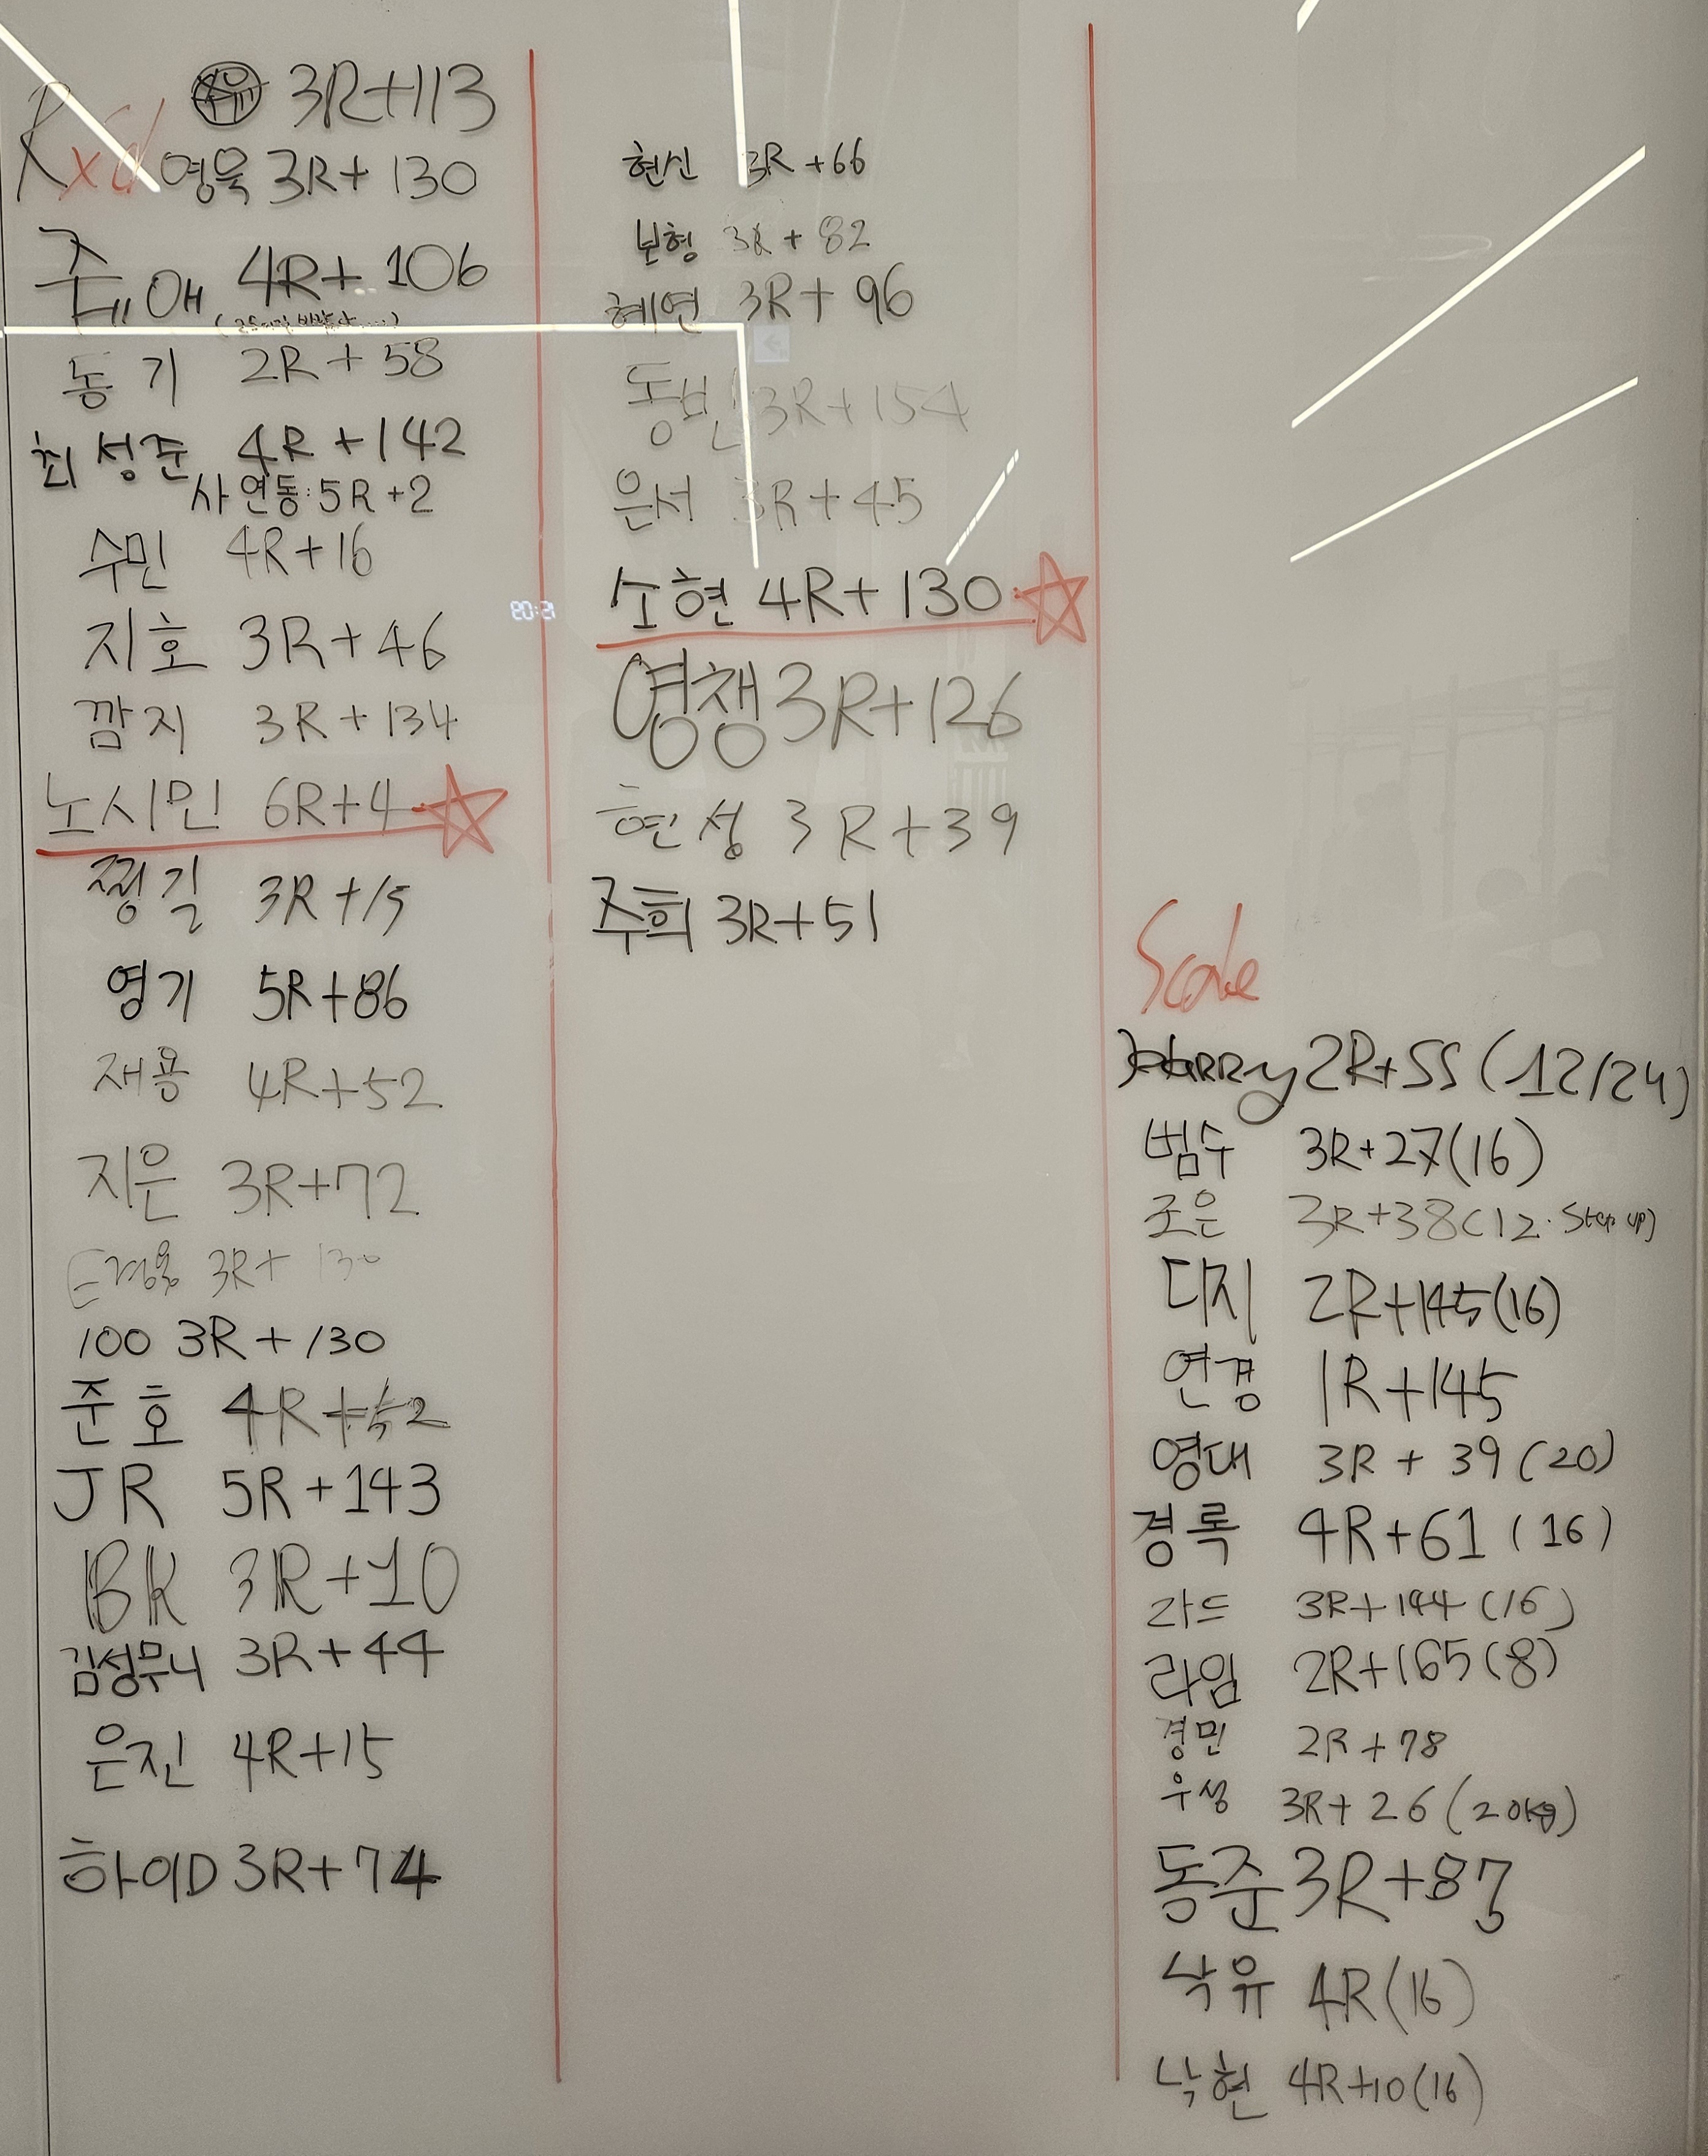 Rxd
3R+113
영욱 3R+130
4R+106
동기 2R+58
최성준 4R+142
사연동:5R+2
수민 4R+16
지호 3R+46
깜지 3R+134
노시민 6R+4
찡길 3R+15
영기 5R+86
재용 4R+52
지은 3R+72
3R+130
100 3R+130
준호 4R+52
JR 5R+143
BK 3R+10
김성무니 3R+44
은진 4R+15
하이D 3R+74
현신 3R+66
보형 3R+82
혜연 3R+96
동빈 3R+154
은서 3R+45
소현 4R+130
영챙 3R+126
현성 3R+39
주희 3R+51
Scale
HARRY 2R+55(12/24)
범수 3R+27(16)
조은 3R+38(12. Step up)
디지 2R+145(16)
연경 1R+145
영대 3R+39(20)
경록 4R+61(16)
라드 3R+144(16)
라임 2R+165(8)
경민 2R+78
우성 3R+26(20kg)
동준 3R+87
낙유 4R(16)
낙현 4R+10(16)